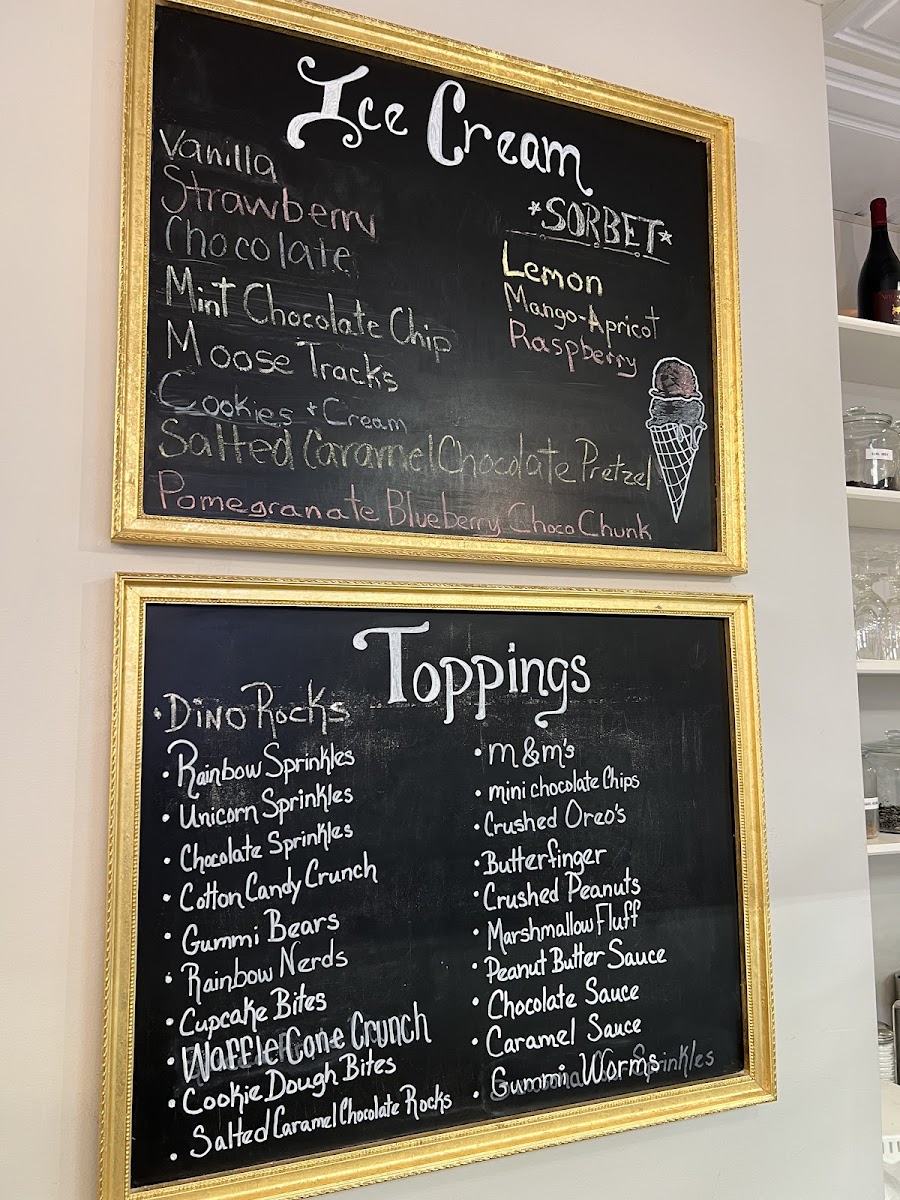 Ice Cream
Vanilla
Strawberry
Chocolate
Mint Chocolate Chip
Moose Tracks
Cookies + Cream
Salted Caramel Chocolate Pretzel
Pomegranate Blueberry Choco Chunk
*SORBET*
Lemon
Mango-Apricot
Raspberry
Toppings
• Dino Rocks
• Rainbow Sprinkles
• Unicorn Sprinkles
• Chocolate Sprinkles
• Cotton Candy Crunch
• Gummi Bears
• Rainbow Nerds
• Cupcake Bites
• Waffle Cone Crunch
• Cookie Dough Bites
• Salted Caramel Chocolate Rocks
• M&M's
• mini chocolate Chips
• Crushed Oreo's
• Butterfinger
• Crushed Peanuts
• Marshmallow Fluff
• Peanut Butter Sauce
• Chocolate Sauce
• Caramel Sauce
• Gummi Worms